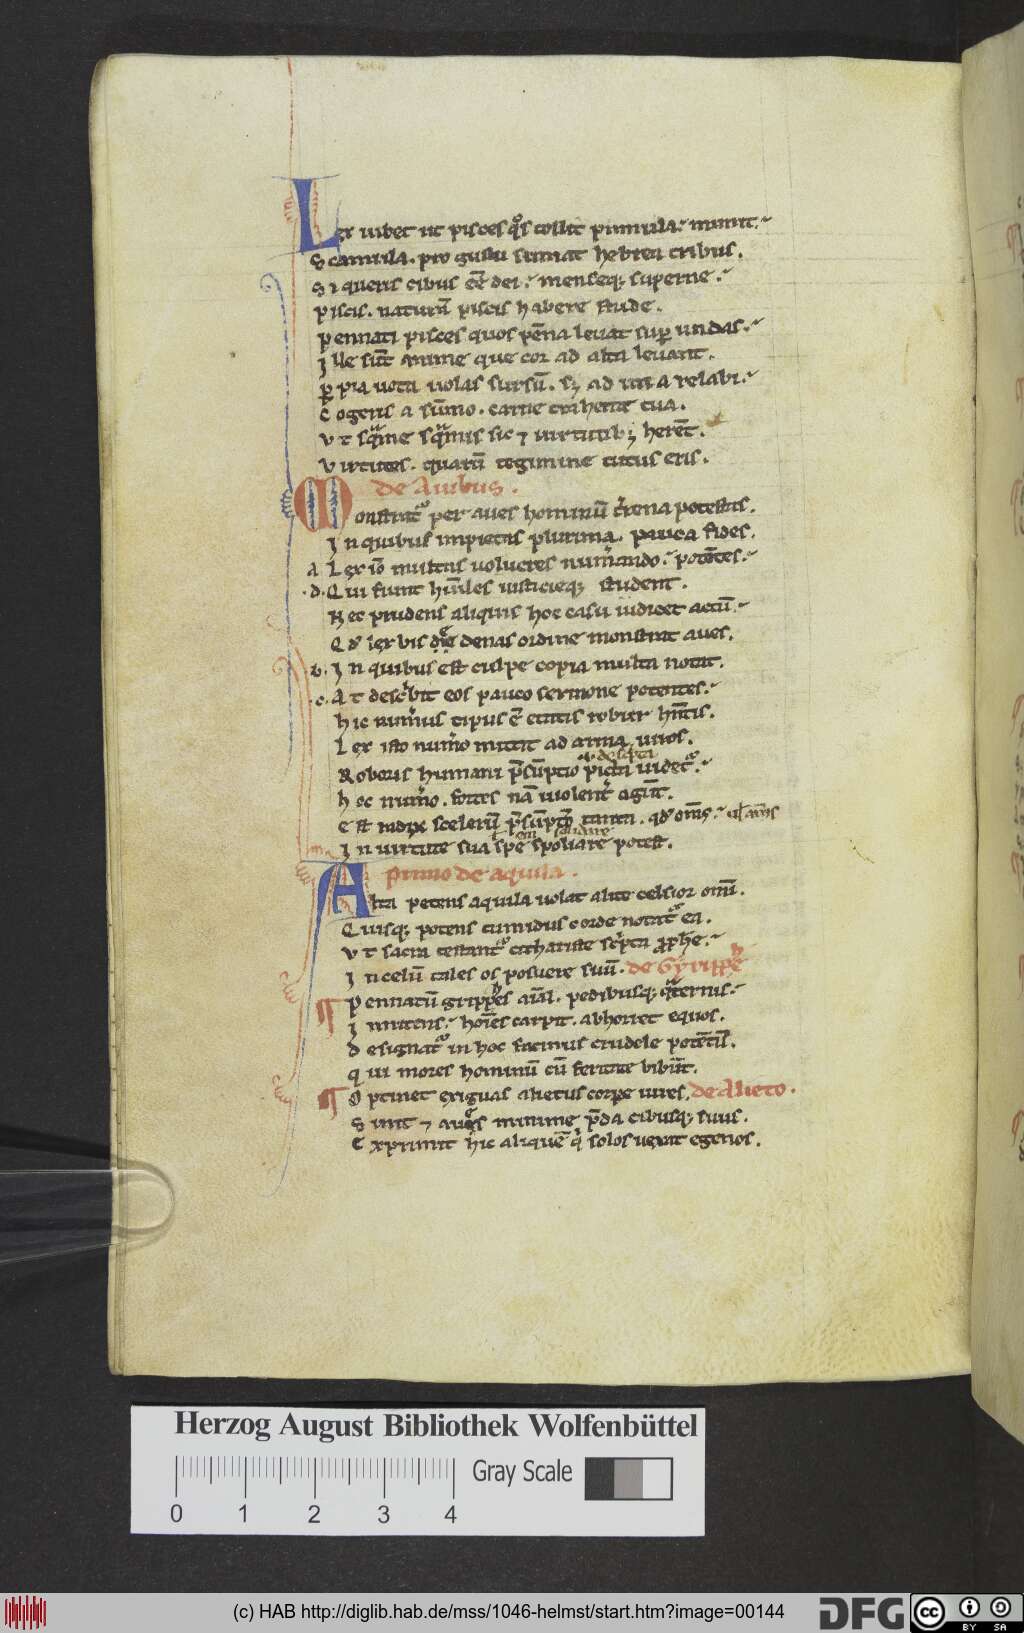 Lex iubet ut pisces q̊s tollit pinnula. munit.
Squamula. pro gustu sumat hebrea tribus.
Si queris cibus eē dei. menseq; superne.
Piscis. naturā piscis habere stude.
Pennati pisces quos pēna leuat sup undas.
Ille sūt anime que cor ad alta leuant.
p pia uota uolas sursū. sꝫ ad ima relabi.
Cogeris a sūmo. carne trahente tua.
Vt sqͣme sqͣmis sic ⁊ uirtutibꝫ herēt.
Virtutes. quarū tegimine tutus eris.
de Auibus.
Monstrat᷑ per aues hominū t̓rena potestas.
In quibus impietas plurima. pauca fides.
a Lex iō multas uolucres num̓ando. potētes.
.d. Qui fiunt hūiles iusticieq; student.
Nec prudens aliquis hoc casu iudicet actū.
Qd̓ lex bis denas ordine monstrat aues.
.b. In quibus est culpe copia multa notat.
.c. At desc̓bit eos pauco sermone potentes.
hic num̓us tipus ē etatis robur hn̄tis.
Lex isto num̓o mittit ad arma uiros.
Roboris humani p̄sūptio picta uidet᷑.
hoc num̓o. fortes nā uiolent̓ agūt.
Est radix scelerū p̄sūptio tanta. qd̓ om̄s. ul̓
In uirtute sua spē spoliare potest.
primo de aquila.
Alta petens aquila uolat alite celsior om̄i.
Quisq; potens tumidus corde notat᷑ ea.
Vt sacra testant᷑ cithariste sc̓pta pphe.
In celū tales os posuere suū. de Gyrippe
¶ Pennatū grippes aīal. pedibusq; qͣternis.
Inuitens. hoīes carpit. abhorret equos.
designat᷑ in hoc facinus crudele potētū.
qui mores hominū cū feritate bibūt.
¶ Optinet exiguas alietus corpe uires. de Alieto.
Sunt ⁊ aues minime p̄da cibusq; suus.
Exprimit hic aliquē q̓ solos uexat egenos.
Herzog August Bibliothek Wolfenbüttel
Gray Scale
0 1 2 3 4
(c) HAB http://diglib.hab.de/mss/1046-helmst/start.htm?image=00144
DFG cc BY SA